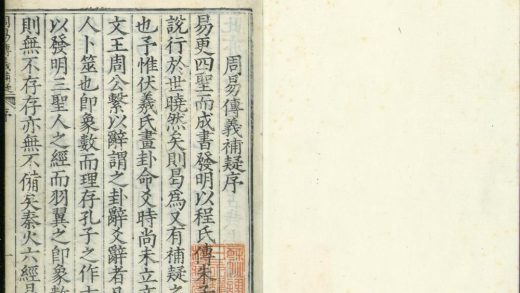 周易傳義補疑序
易更四聖而成書發明以程氏傳朱子
說行於世曉然矣則曷為又有補疑之
也予惟伏羲氏畫卦命爻時尚未立文
文王周公繫以辭謂之卦辭爻辭者凡
人卜筮也即象數而理存孔子之作十
以發明三聖人之經而羽翼之即象數
則無不存存亦無不備矣秦火六經
周易傳義補疑 序 一